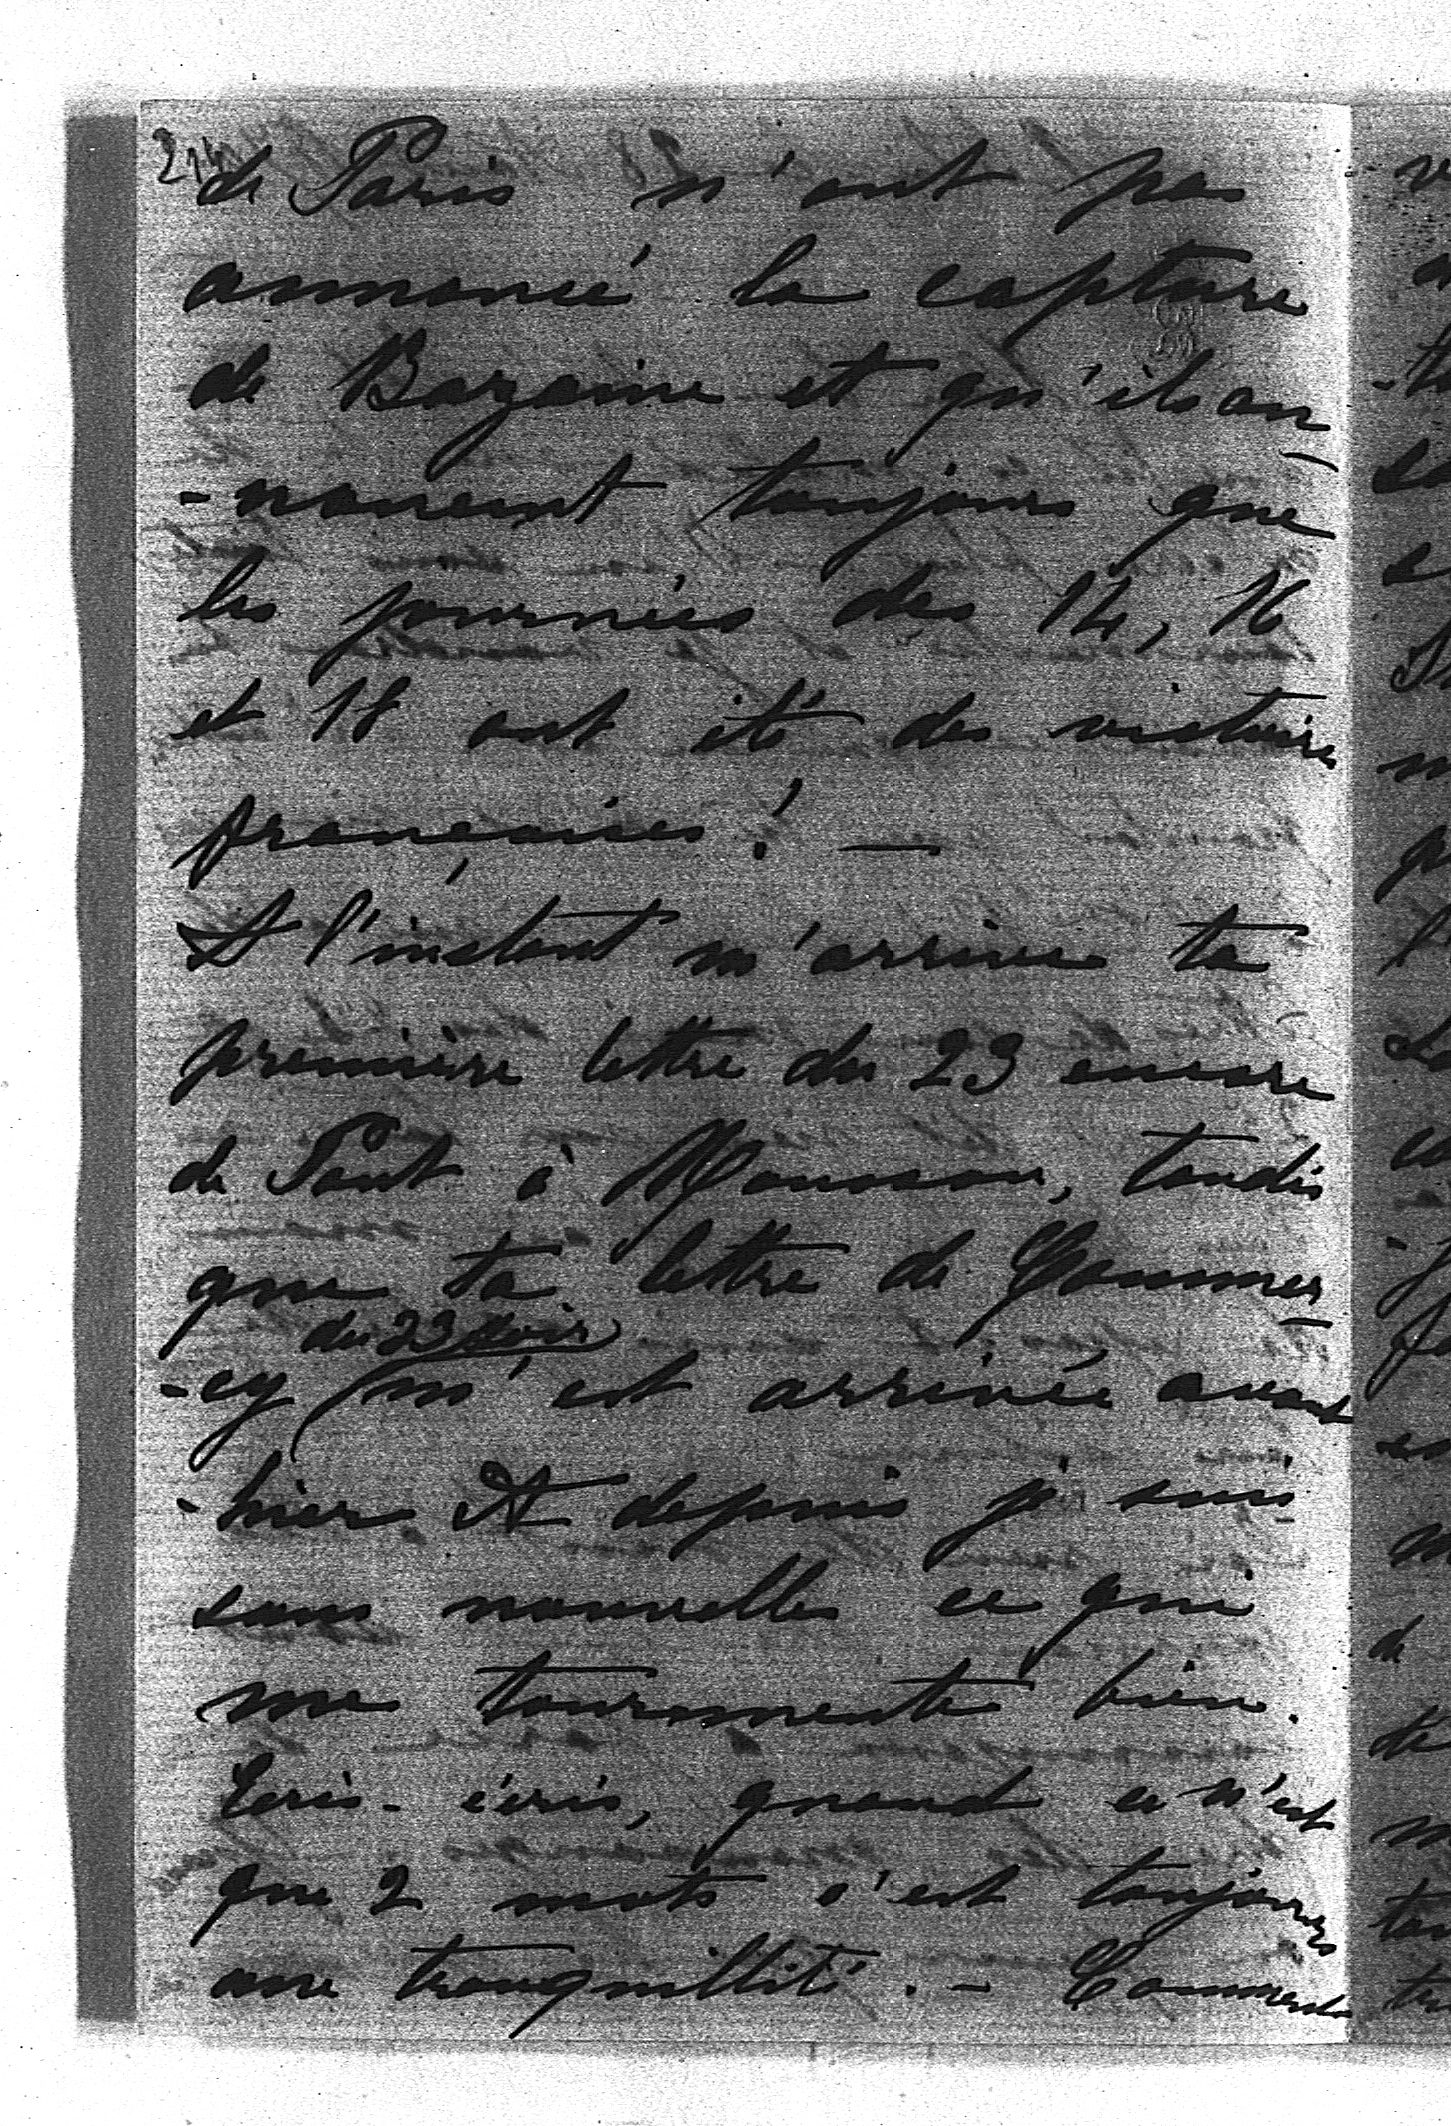 de Paris n'ont pas
annoncé la capture
de Bazaine et qu'ils an
-noncent toujours que
les journées des 14, 16
et 18 ont été des victoires
françaises! —
A l'instant m'arrive ta
première lettre du 23 encore
de Pont à Mousson, tandis
que ta lettre de Commer
du 23 soir
-cy m'est arrivée avant
-hier. Et depuis je suis
sans nouvelles ce qui
me tourmente bien.
Ecris - écris, quand ce n'est
que 2 mots c'est toujours
une tranquillité. - Comment